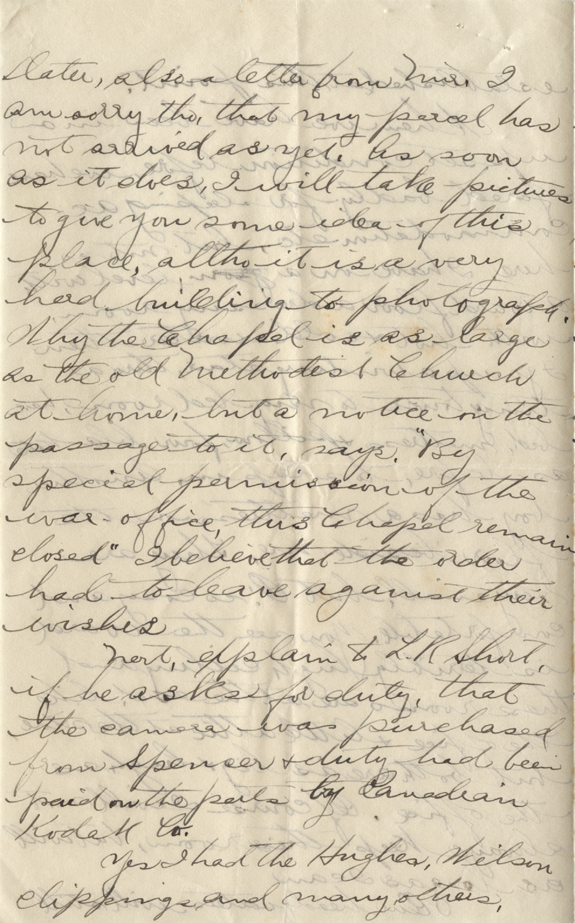 Slater, also a letter from Mr. I
am sorry tho, that my parcel has
not arrived as yet. As soon
as it does, I will take pictures
to give you some idea of this
place, altho it is a very
hard building to photograph.
Why the Chapel is as large
as the old Methodist Church
at home, but a notice on the
passage to it, says. "By
special permission of the
war-office, this Chapel remain
closed" I believe that the order
had to leave against their
wishes
Next, explain to L.R Short,
if he asks for duty, that
the camera was purchased
from Spencer & duty had been
paid on the parts by Canadian
Kodak Co.
Yes I had the Hughes, Wilson
clippings and many others,